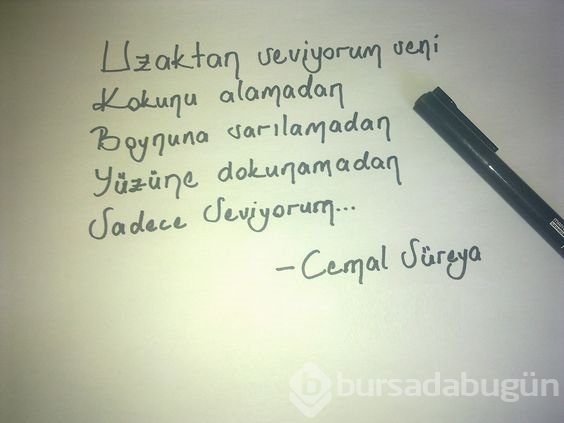 Uzaktan seviyorum seni
Kokunu alamadan
Boynuna sarılamadan
Yüzüne dokunamadan
Sadece Seviyorum...
- Cemal Süreya
bursadabugün